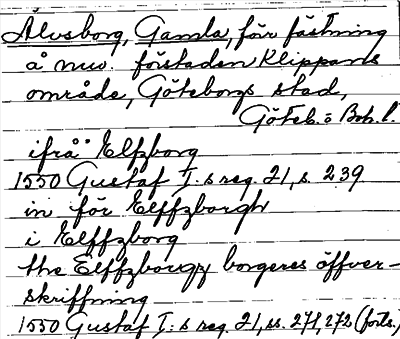 Älvsborg, Gamla, förr fästning
å nuv. förstaden Klippans
område, Göteborgs stad,
Göteb. o Boh. l.
ifrå Elfzborg
1550 Gustaf I:s reg. 21, s. 239
in för Elffzborgh
i Elffzborg
the Elffzborgz borgeres öffver-
skriffning
1550 Gustaf I:s reg. 21, ss. 271, 272 (forts.)